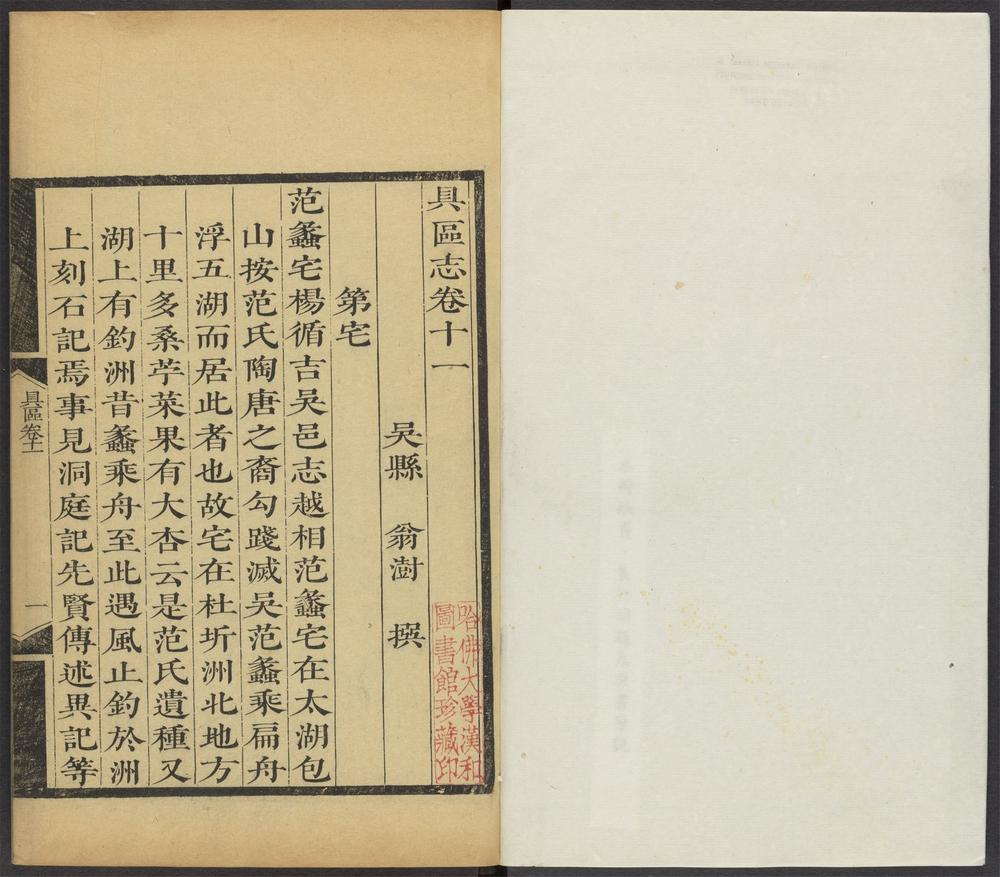 具區志卷十一
吳縣　翁澍　撰
第宅
范蠡宅楊循吉吳邑志越相范蠡宅在太湖包
山按范氏陶唐之裔勾踐滅吳范蠡乘扁舟
浮五湖而居此者也故宅在杜圻洲北地方
十里多桑苧菜果有大杏云是范氏遺種又
湖上有釣洲昔蠡乘舟至此遇風止釣於洲
上刻石記焉事見洞庭記先賢傳述異記等
具區卷十一
一
哈佛大學漢和
圖書館珍藏印